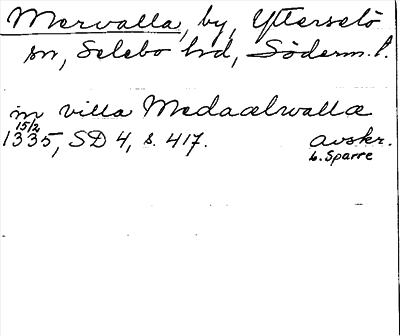 Mervalla, by, Ytterselö
sn, Selebo hd, Söderm. l.
in villa Medaælwallæ
15/2
1335, SD 4, s. 417. avskr.
L. Sparre